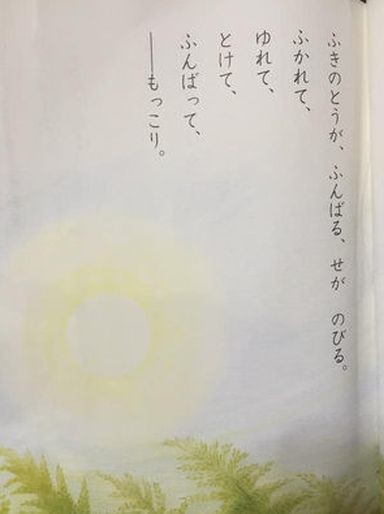 ふきのとうが、ふんばる、せが　のびる。
ふかれて、
ゆれて、
とけて、
ふんばって、
――もっこり。